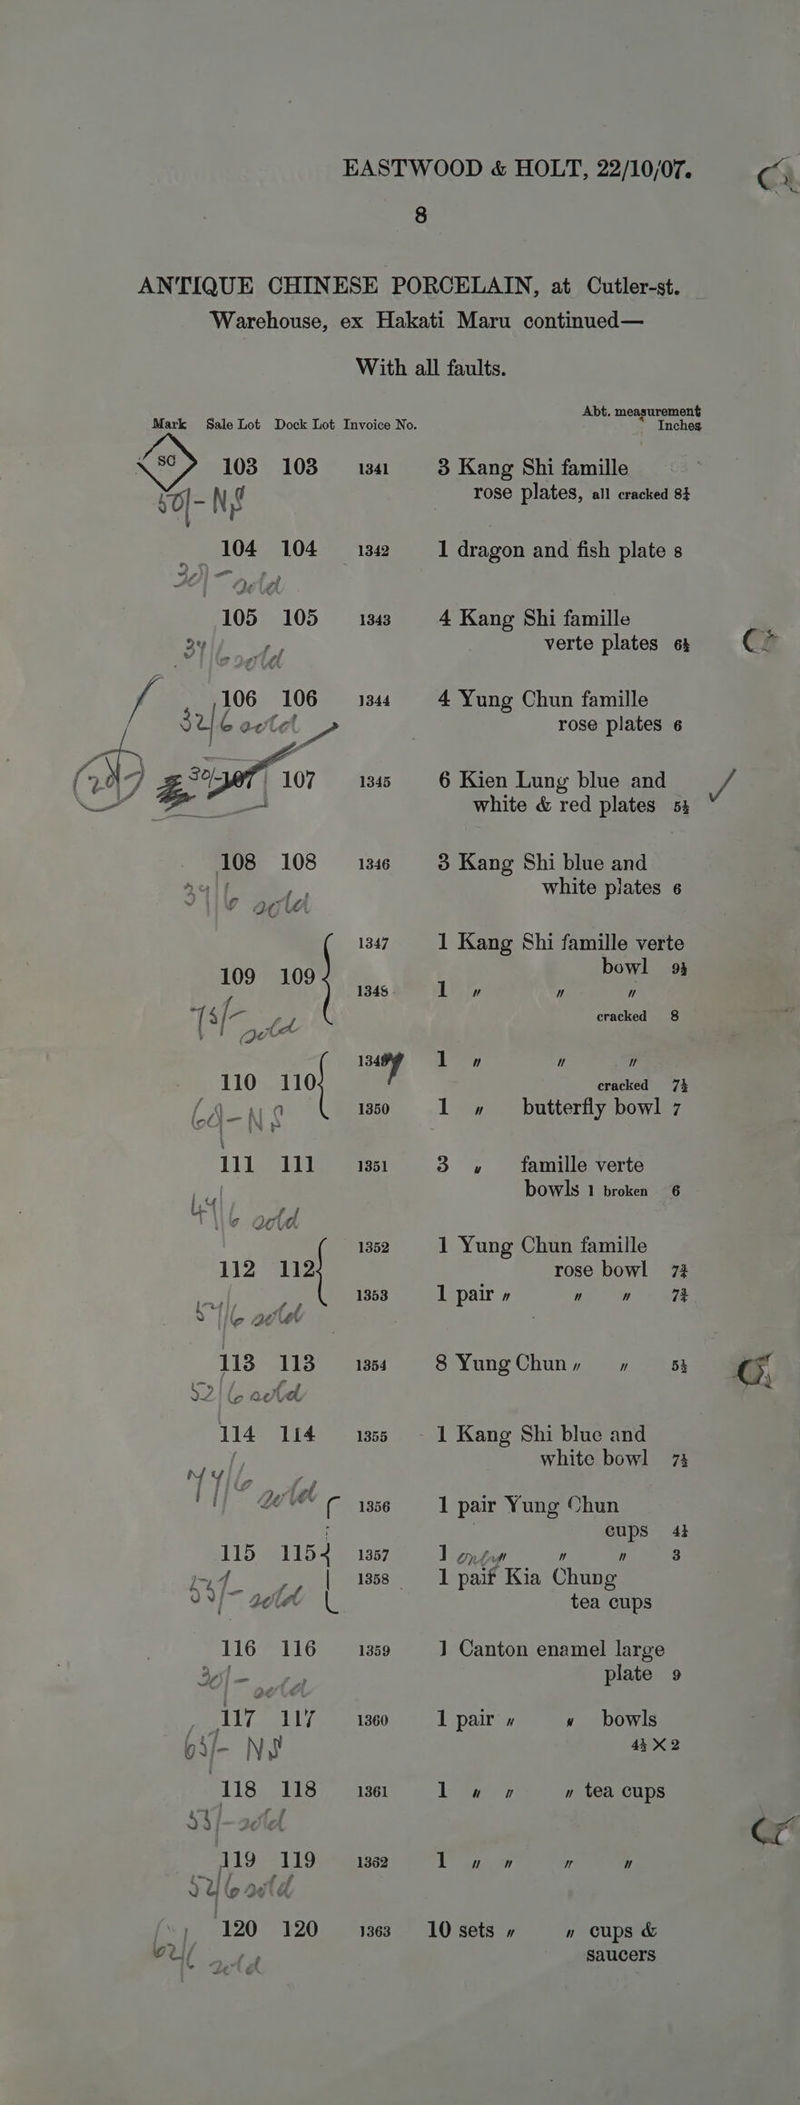 EASTWOOD & HOLT, 22/10/07.
8
ANTIQUE CHINESE PORCELAIN, at Cutler-st.
Warehouse, ex Hakati Maru continued—
With all faults.
Abt. measurement
Mark Sale Lot Dock Lot Invoice No. Inches
SC 103 103 1341 3 Kang Shi famille
50/- NS rose plates, all cracked 8¾
104 104 1342 1 dragon and fish plate 8
30/-
105 105 1343 4 Kang Shi famille
34/6 verte plates 6½
106 106 1344 4 Yung Chun famille
32/6 rose plates 6
30/- 107 107 1345 6 Kien Lung blue and
white & red plates 5½
108 108 1346 3 Kang Shi blue and
white plates 6
1347 1 Kang Shi famille verte
109 109 bowl 9½
1348 1 " " "
cracked 8
1349 1 " " "
110 110 cracked 7½
NS 1350 1 " butterfly bowl 7
111 111 1351 3 " famille verte
bowls 1 broken 6
1352 1 Yung Chun famille
112 112 rose bowl 7¾
1353 1 pair " " " 7¾
113 113 1354 8 Yung Chun " " 5½
52/6
114 114 1355 1 Kang Shi blue and
white bowl 7½
1356 1 pair Yung Chun
cups 4½
115 115 1357 1 only " " 3
1358 1 pair Kia Chung
tea cups
116 116 1359 1 Canton enamel large
30/- plate 9
117 117 1360 1 pair " " bowls
NS 4½ X 2
118 118 1361 1 " " " tea cups
119 119 1362 1 " " " "
120 120 1363 10 sets " " cups &
saucers